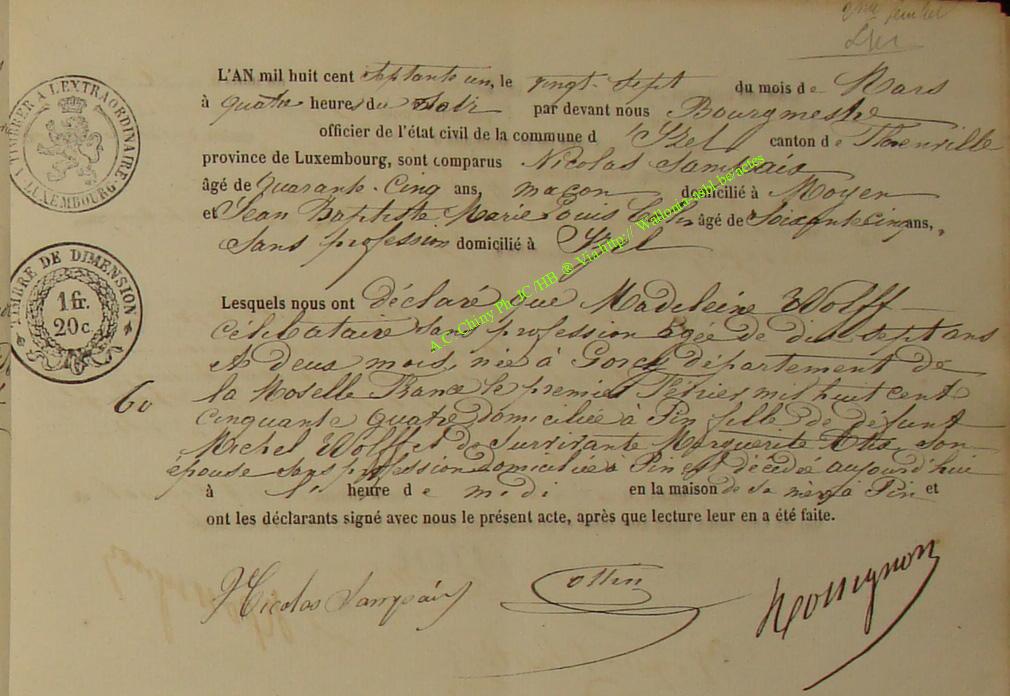 2me feuillet
TIMBRER A L'EXTRAORDINAIRE
LUXEMBOURG
L'AN mil huit cent septante un, le vingt-sept du mois de Mars
à quatre heures du soir par devant nous Bourgmestre
officier de l'état civil de la commune d'Izel canton de Florenville
province de Luxembourg, sont comparus Nicolas Sampaix
âgé de quarante-cinq ans, maçon domicilié à Moyen
et Jean Baptiste Marie Louis âgé de soixante cinq ans,
sans profession domicilié à Izel
TIMBRE DE DIMENSION
1 fr.
20 c.
A C- Chiny Ph JC /HB ® Via http:// Wallonia-asbl.be/actes
Lesquels nous ont déclaré que Madeleine Wolff
célibataire sans profession âgée de dix-sept ans
et deux mois, née à département de
la Moselle France le premier Février mil huit cent
60
cinquante quatre domiciliée à Pin fille de défunt
Michel Wolff et de survivante Marguerite son
épouse sans profession domiciliée à Pin est décédée aujourd'hui
à heure de midi en la maison de sa mère à Pin et
ont les déclarants signé avec nous le présent acte, après que lecture leur en a été faite.
Nicolas Sampaix
Ottin
Rossignon